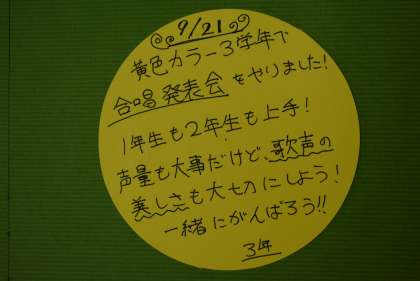 9/21
黄色カラー3学年で
合唱発表会をやりました!
1年生も2年生も上手!
声量も大事だけど、歌声の
美しさも大切にしよう!
一緒にがんばろう!!
3年